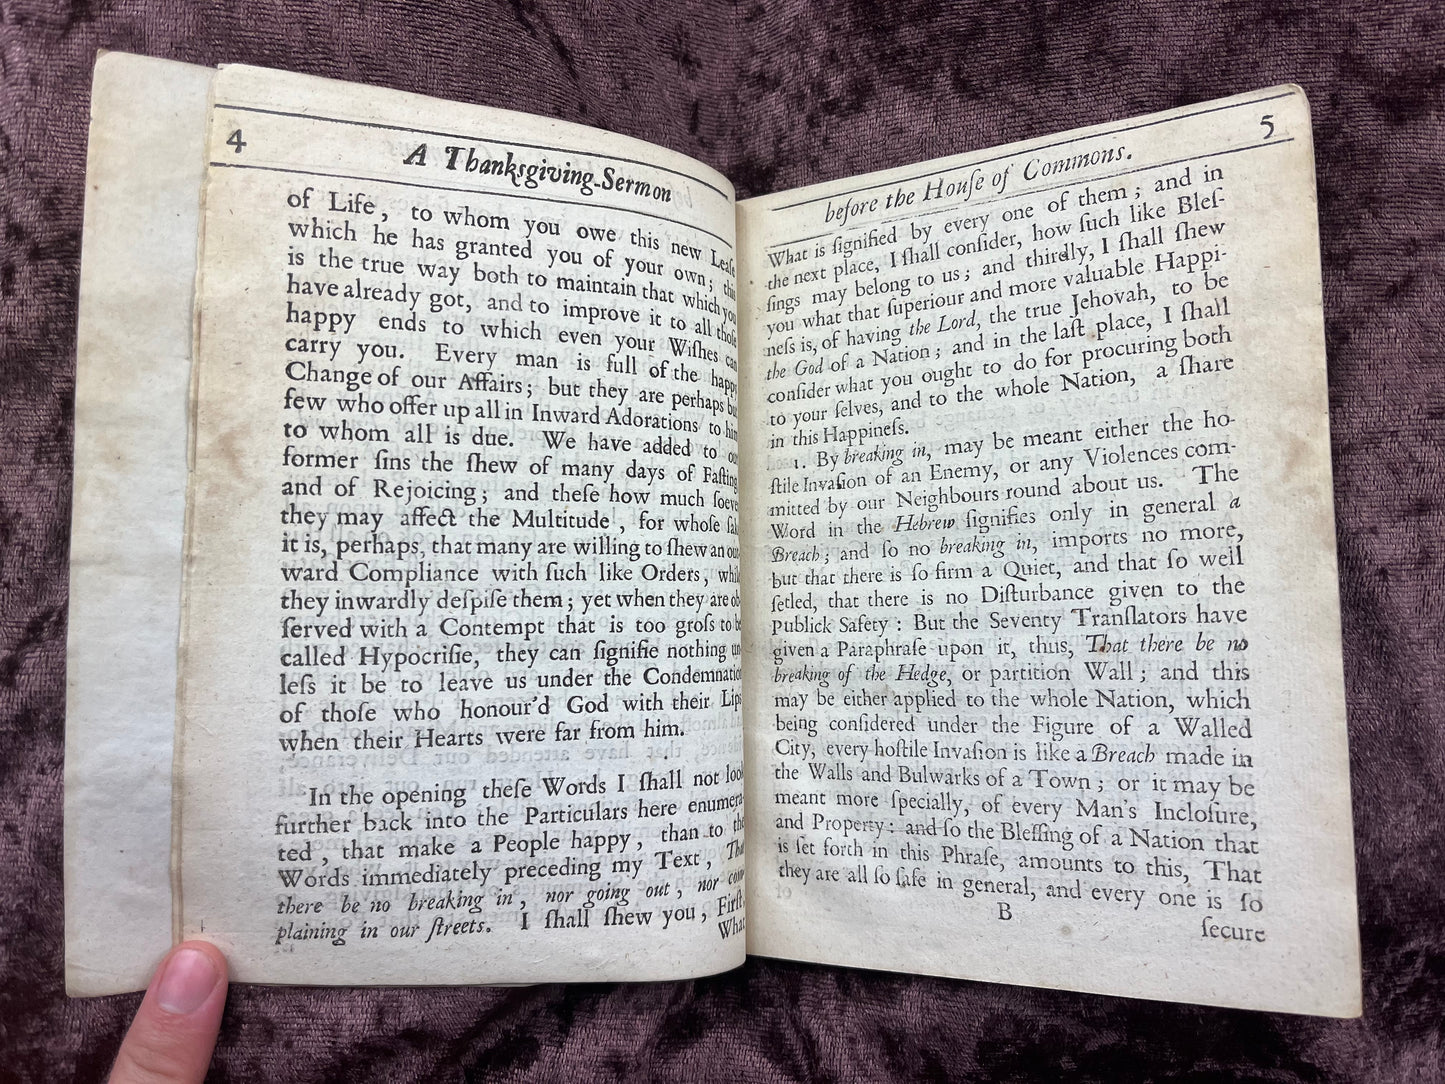 4
A Thanksgiving-Sermon
of Life, to whom you owe this new Leaſe
which he has granted you of your own; this
is the true way both to maintain that which you
have already got, and to improve it to all thoſe
happy ends to which even your Wiſhes can
carry you. Every man is full of the happy
Change of our Affairs; but they are perhaps but
few who offer up all in Inward Adorations to him
to whom all is due. We have added to our
former ſins the ſhew of many days of Faſting
and of Rejoicing; and theſe how much ſoever
they may affect the Multitude, for whoſe ſake
it is, perhaps, that many are willing to ſhew an out
ward Compliance with ſuch like Orders, while
they inwardly deſpiſe them; yet when they are ob
ſerved with a Contempt that is too groſs to be
called Hypocriſie, they can ſignifie nothing un
leſs it be to leave us under the Condemnation
of thoſe who honour'd God with their Lips
when their Hearts were far from him.
In the opening theſe Words I ſhall not look
further back into the Particulars here enumera
ted, that make a People happy, than to the
Words immediately preceding my Text, That
there be no breaking in, nor going out, nor com
plaining in our ſtreets. I ſhall ſhew you, Firſt,
What
5
before the Houſe of Commons.
What is ſignified by every one of them; and in
the next place, I ſhall conſider, how ſuch like Bleſ-
ſings may belong to us; and thirdly, I ſhall ſhew
you what that ſuperiour and more valuable Happi-
neſs is, of having the Lord, the true Jehovah, to be
the God of a Nation; and in the laſt place, I ſhall
conſider what you ought to do for procuring both
to your ſelves, and to the whole Nation, a ſhare
in this Happineſs.
1. By breaking in, may be meant either the ho-
ſtile Invaſion of an Enemy, or any Violences com-
mitted by our Neighbours round about us. The
Word in the Hebrew ſignifies only in general a
Breach; and ſo no breaking in, imports no more,
but that there is ſo firm a Quiet, and that ſo well
ſetled, that there is no Diſturbance given to the
Publick Safety: But the Seventy Tranſlators have
given a Paraphraſe upon it, thus, That there be no
breaking of the Hedge, or partition Wall; and this
may be either applied to the whole Nation, which
being conſidered under the Figure of a Walled
City, every hoſtile Invaſion is like a Breach made in
the Walls and Bulwarks of a Town; or it may be
meant more ſpecially, of every Man's Incloſure,
and Property: and ſo the Bleſſing of a Nation that
is ſet forth in this Phraſe, amounts to this, That
they are all ſo ſafe in general, and every one is ſo
B
ſecure